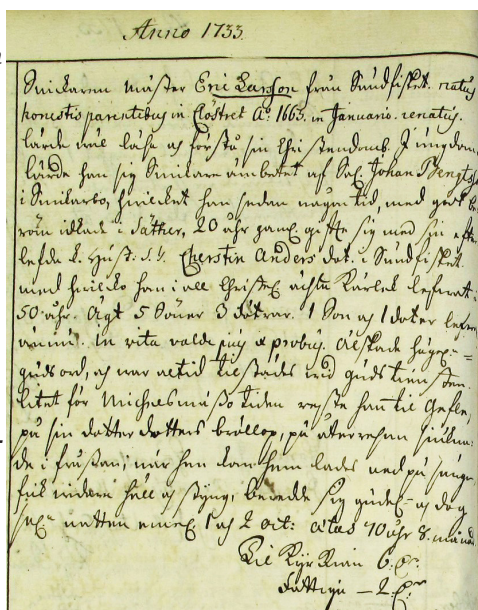 Anno 1733.
Snickaren Mäster Eric Larsson från Sundfisket. natus
honestis parentibus in Clöstret Ao: 1663. in Januario. renatus.
lärde wäl läsa och förstå sin Christendom. I ungdom
lärde han sig Snickare ämbetet af Sal. Johan Bengts
i Snikarbo, hwilcket han sedan någon tid, med godt be-
röm idkade i Säther, 20 åhr gam. gifte sig med sin efter
lefda k. Hust: Cherstin Anders dot. i Sundfisket.
med hwilcken han i all Christel. ächta kärlek lefwat
50 åhr. Ägt 5 Söner 3 dötrar. 1 Son och 1 doter lefwa
ännu. In vita valde pius & probus. Älskade högel.
guds ord, och war altid tilstädes wid guds tiensten.
litet för Michelsmässo tiden reste han til Gefle,
på sin dotter dotters bröllop, på återresan siukna-
de i frussan, när han kom hem lades ned på säng,
fik håll och styng, beredde sig gudel. och dog
sal. natten emel. 1 och 2 oct: ætas 70 åhr 8. månad
Til Kyrkian 6.
Fattiga — 2.